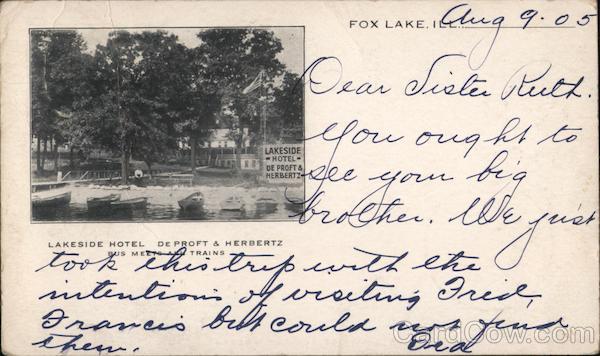 FOX LAKE, ILL. Aug 9-05
Dear Sister Ruth.
You ought to
see your big
brother. We just
took this trip with the
intentions of visiting Fred,
Francis but could not find
them. Ed
LAKESIDE
HOTEL
DE PROFT &
HERBERTZ
LAKESIDE HOTEL DE PROFT & HERBERTZ
BUS MEETS ALL TRAINS
CardCow.com